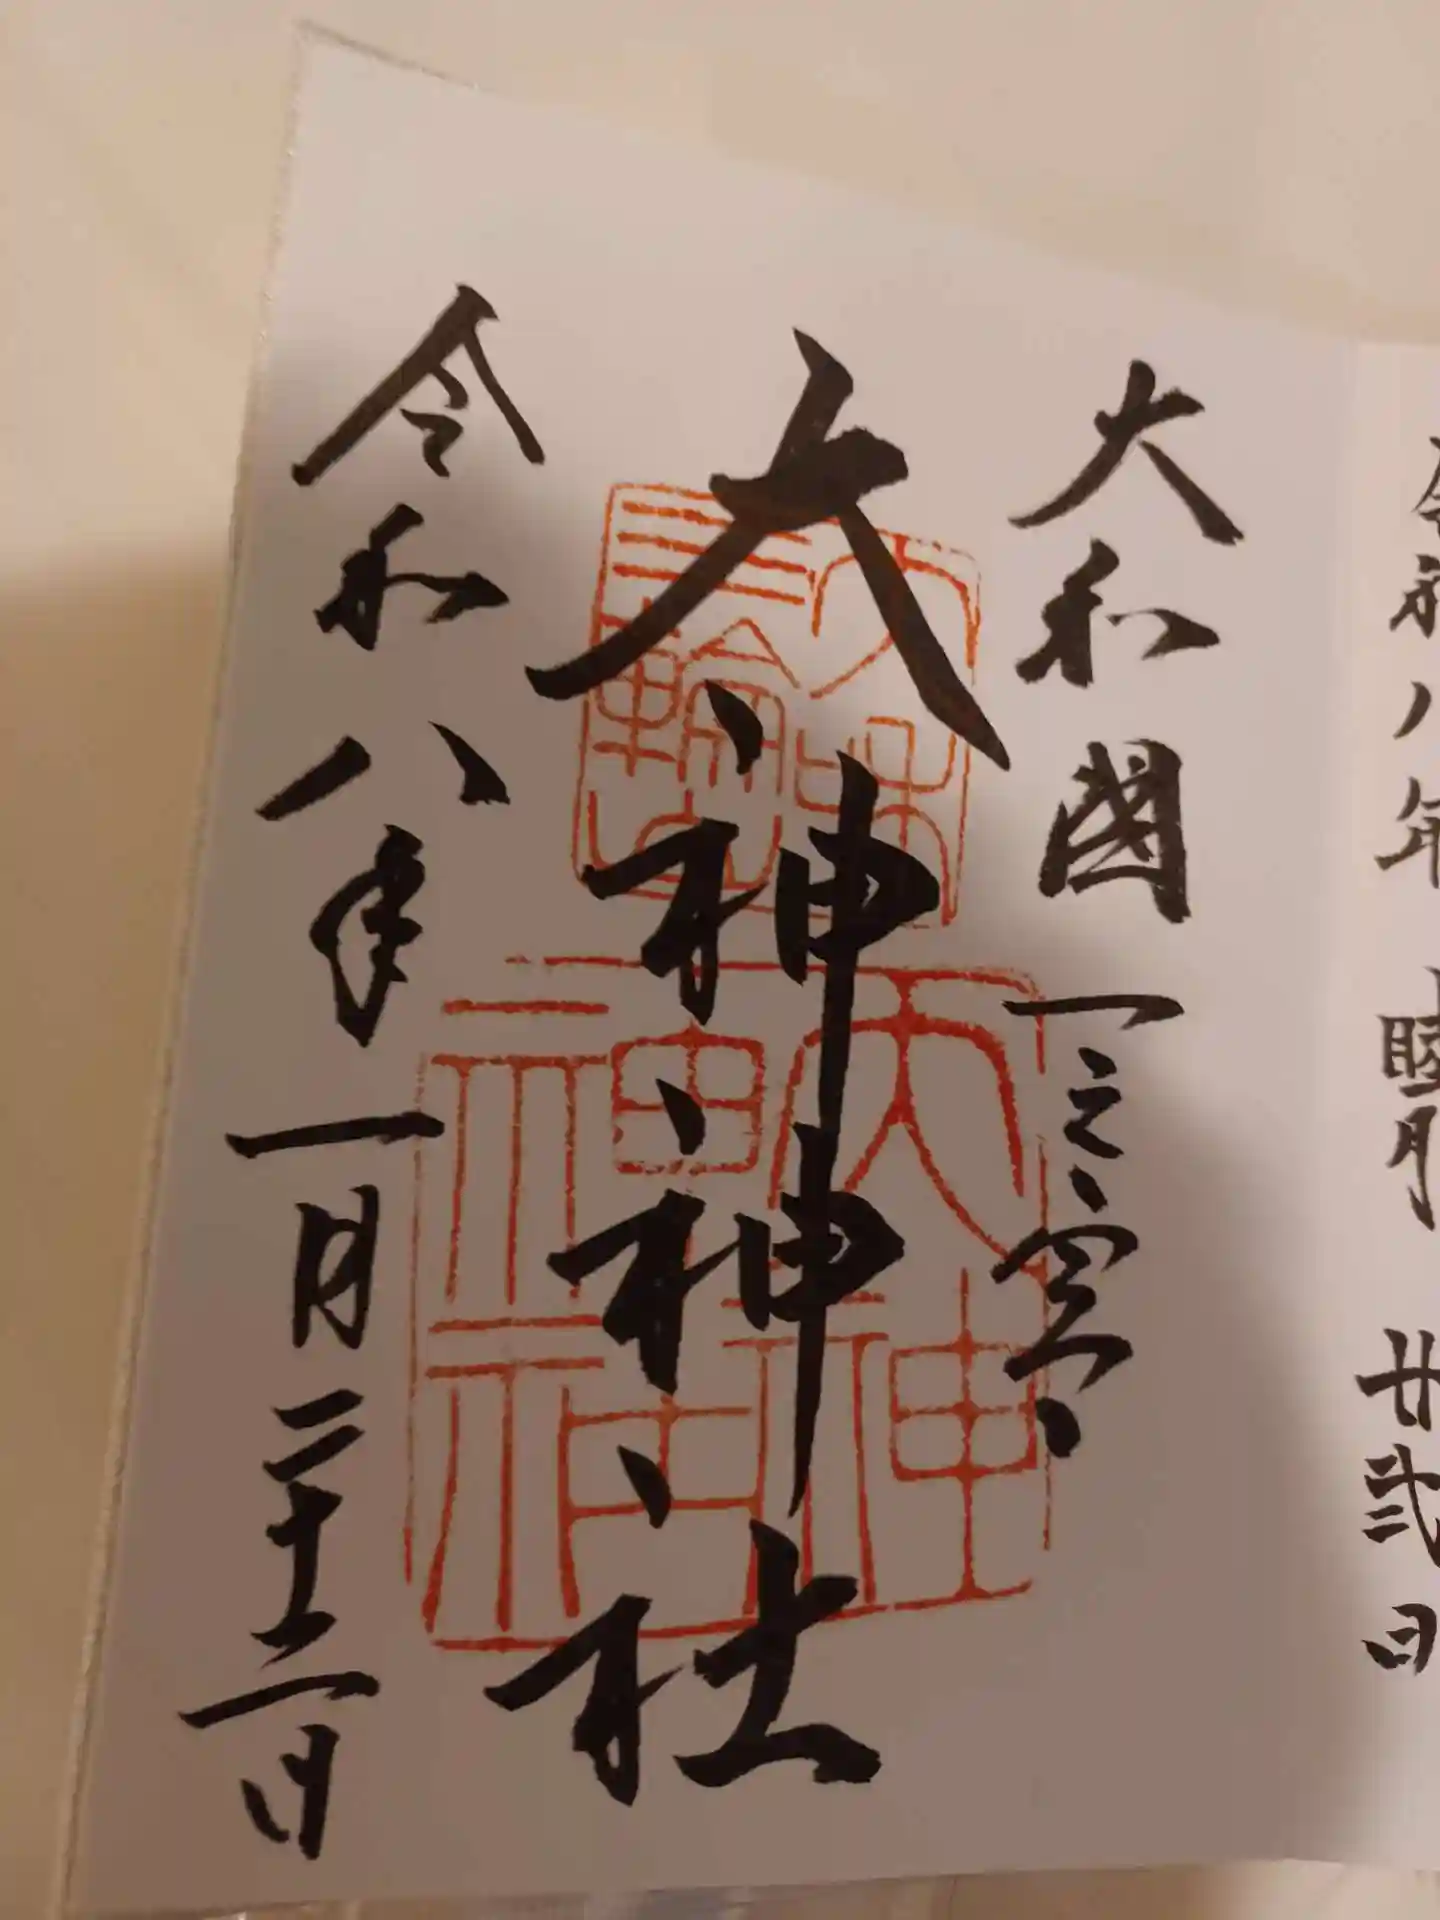 令和八年 睦月 廿弐日
大和國一之宮
三輪
大味
大神神社
大神神社
令和八年一月二十二日